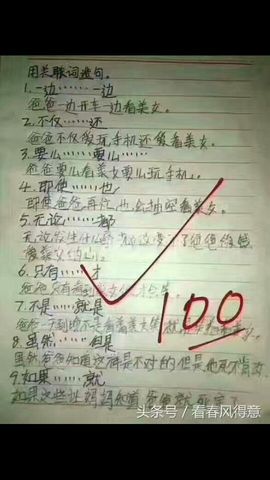 用关联词造句。
1.一边……一边
爸爸一边开车一边看美女。
2.不仅……还
爸爸不仅爱玩手机还爱看美女。
3.要么……要么……
爸爸要么看美女要么玩手机。
4.即使……也
即使爸爸再忙也会抽空看美女。
5.无论……都
无论发生什么事都改变不了爸爸
6.只有……才
爸爸只有看到美女
7.不是……就是
爸爸一天到晚不是看美女
8.虽然……但是
虽然爸爸知道这样是不对的但是他死不肯改
9.如果……就
如果这些让妈妈知道爸爸就死定了
100
头条号／看春风得意